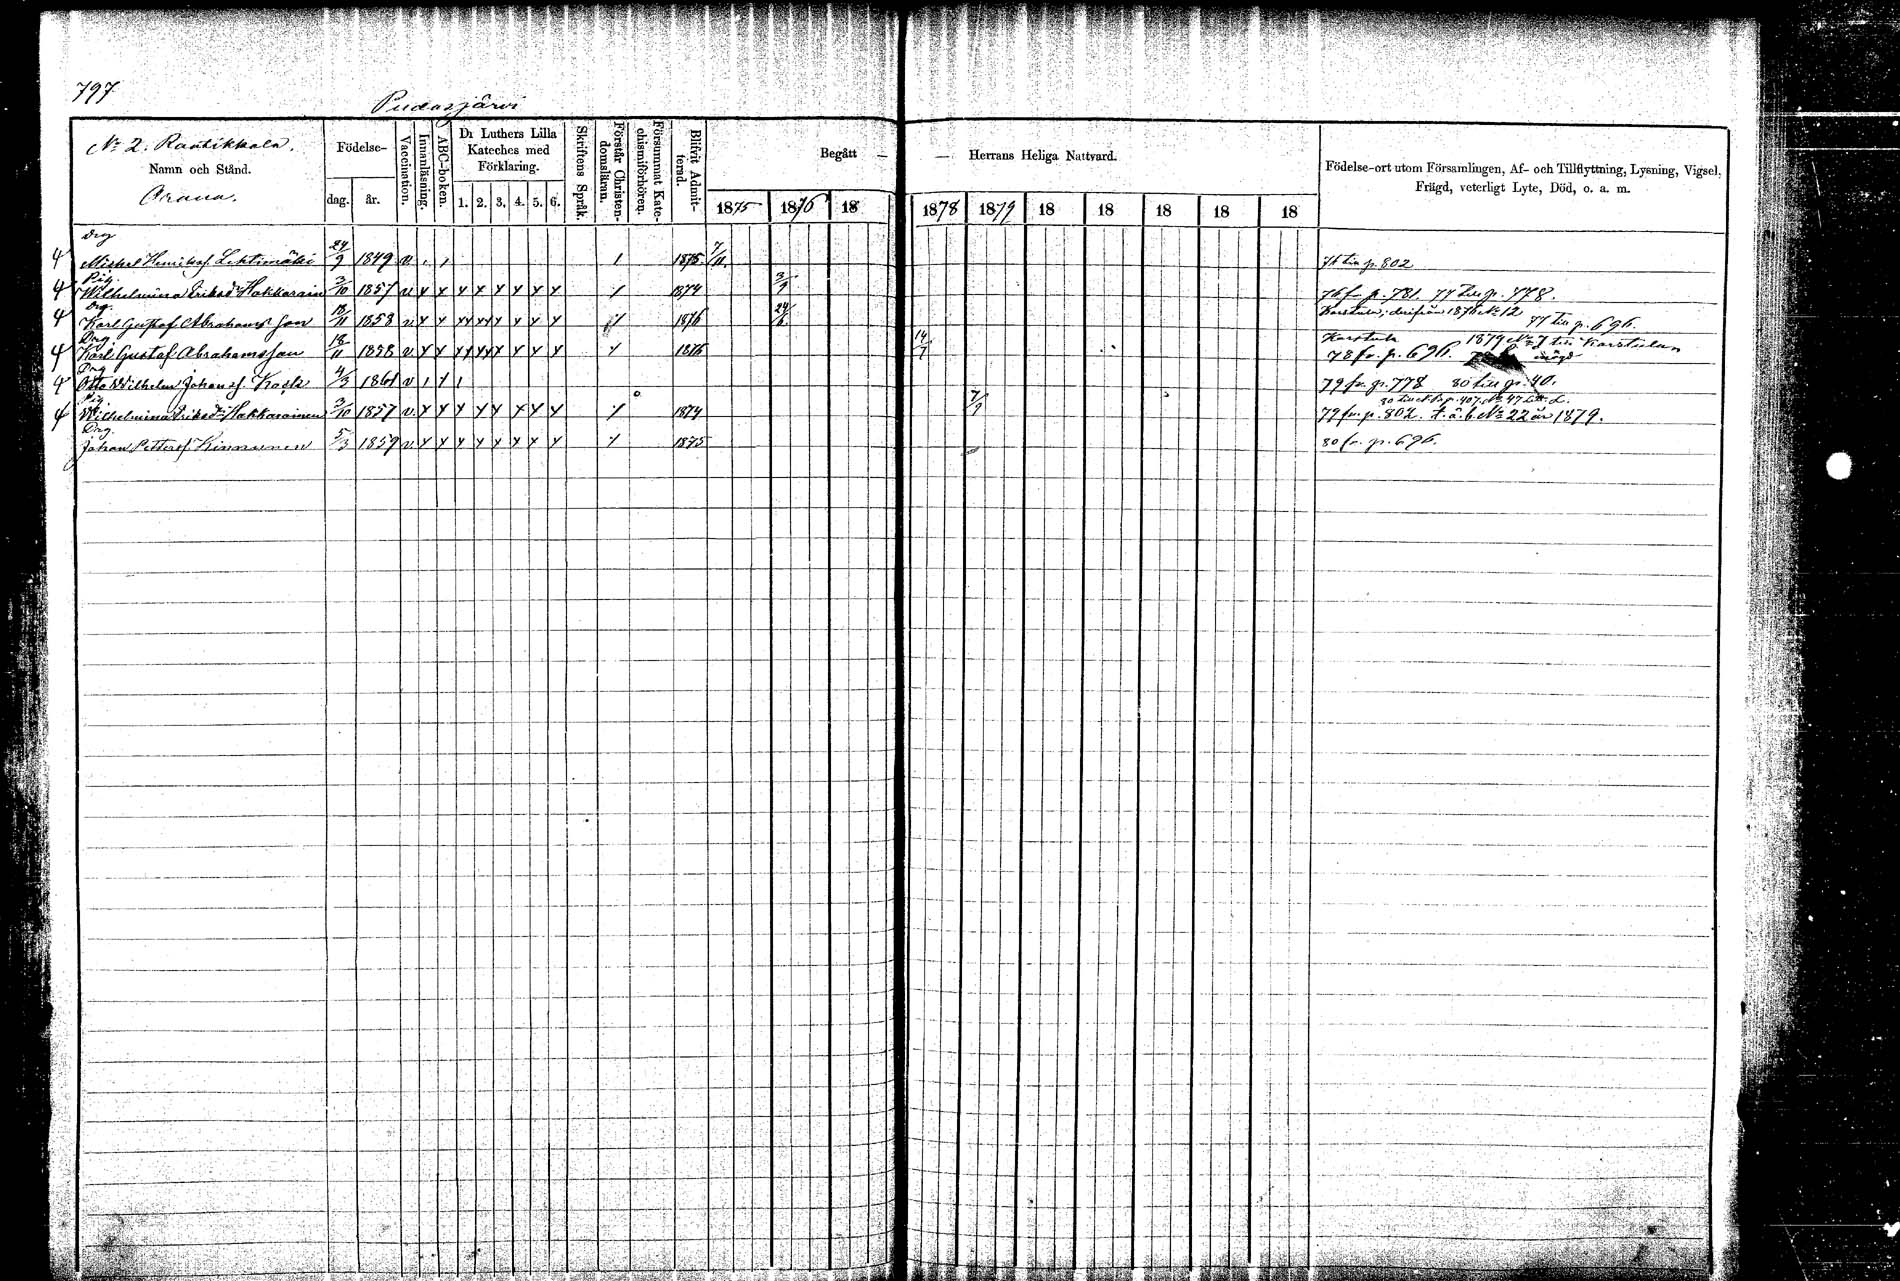 797
Pudasjärvi
No 2. Rautikkala.
Namn och Stånd.
Orava.
Födelse-
dag.
år.
Vaccination.
Innanläsning.
ABC-boken.
Dr Luthers Lilla Kateches med Förklaring.
1. 2. 3. 4. 5. 6.
Skriftens Språk.
Förstår Christendomsläran.
Försummat Katechismiförhören.
Blifvit Admitterad.
Begått — — Herrans Heliga Nattvard.
1875 1876 18 1878 1879 18 18 18 18 18
Födelse-ort utom Församlingen, Af- och Tillflyttning, Lysning, Vigsel,
Frägd, veterligt Lyte, Död, o. a. m.
Drg
Michel Henrikss. Lehtimäki 24/9 1849 v. 1875 7/11. 76 till p. 802
Pig.
Wilhelmina Eriksdr Hakkarain 3/10 1857 v 1874 3/9 76 fr. p. 781. 77 till p. 778.
Drg.
Karl Gustaf Abrahamsson 18/11 1858 v. 1876 24/6 Karstula, derifrån 1876 No 12
77 till p. 696.
Drg.
Karl Gustaf Abrahamsson 18/11 1858 v. 1876 14/7 Karstula 1879 No 7 till Karstula
78 fr. p. 696.
Drg
Otto Wilhelm Johanss. 4/3 1861 v 79 fr. p. 778 80 till p. 40.
Pig.
Wilhelmina Eriksdr Hakkarainen 3/10 1857 v. 1874 7/9 79 fr. p. 802. f. å. b. No 22 år 1879.
Drg.
Johan Petterss. Kinnunen 5/3 1859 v. 1875 80 fr. p. 696.